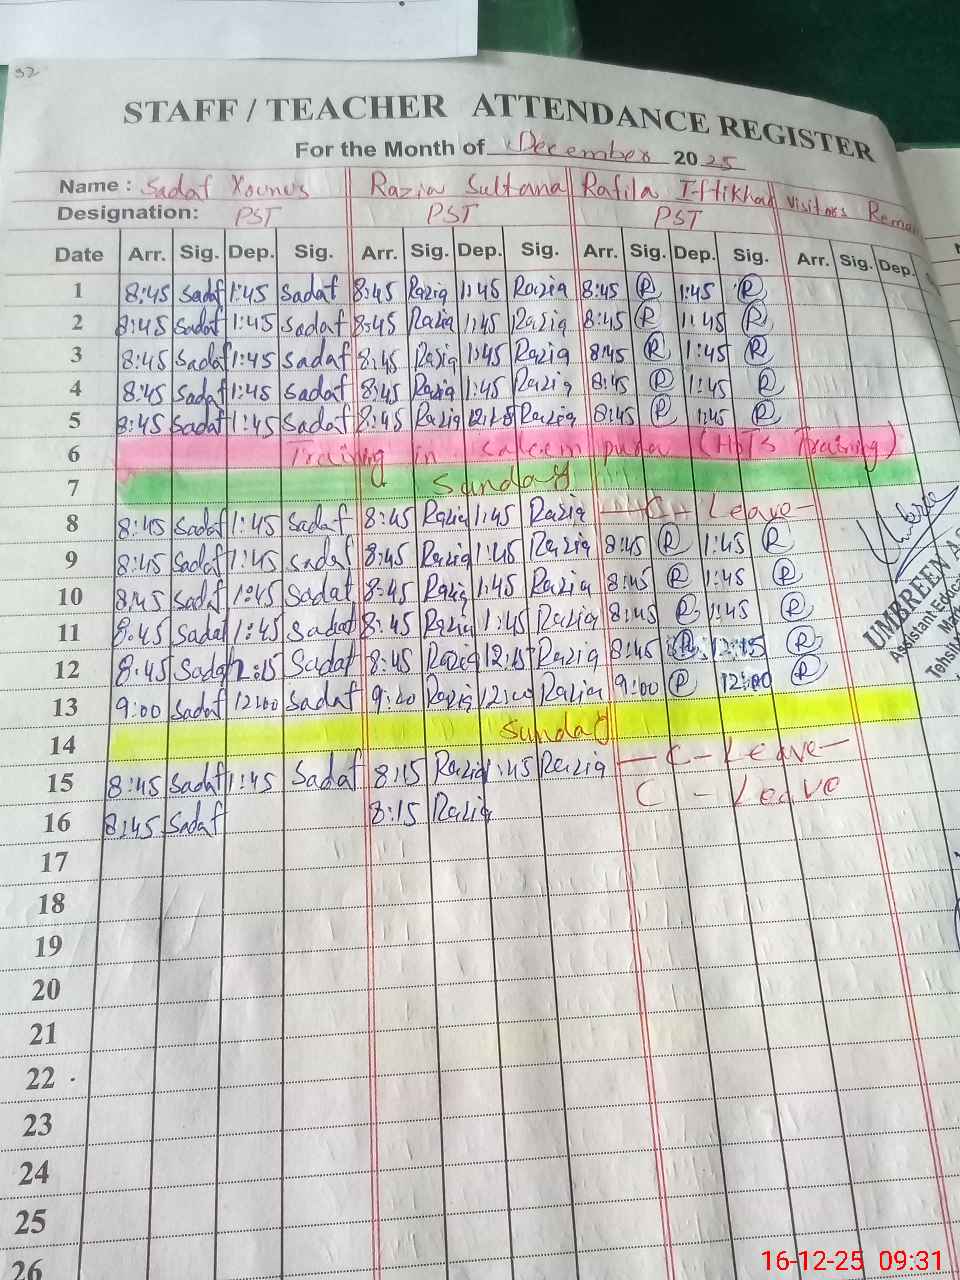 32
STAFF / TEACHER ATTENDANCE REGISTER
For the Month of December 2025
Name : Sadaf Younus Razia Sultana Rafila Iftikhar Visitors Remar
Designation: PST PST PST
Date Arr. Sig. Dep. Sig. Arr. Sig. Dep. Sig. Arr. Sig. Dep. Sig. Arr. Sig. Dep.
1 8:45 Sadaf 1:45 Sadaf 8:45 Razia 1:45 Razia 8:45 R 1:45 R
2 8:45 Sadaf 1:45 Sadaf 8:45 Razia 1:45 Razia 8:45 R 1:45 R
3 8:45 Sadaf 1:45 Sadaf 8:45 Razia 1:45 Razia 8:45 R 1:45 R
4 8:45 Sadaf 1:45 Sadaf 8:45 Razia 1:45 Razia 8:45 R 1:45 R
5 8:45 Sadaf 1:45 Sadaf 8:45 Razia Razia 8:45 R 1:45 R
6 Training in Saleem pura (HOTS Training)
7 Sunday
8 8:45 Sadaf 1:45 Sadaf 8:45 Razia 1:45 Razia — C - Leave -
9 8:45 Sadaf 1:45 Sadaf 8:45 Razia 1:45 Razia 8:45 R 1:45 R
10 8:45 Sadaf 1:45 Sadaf 8:45 Razia 1:45 Razia 8:45 R 1:45 R
11 8:45 Sadaf 1:45 Sadaf 8:45 Razia 1:45 Razia 8:45 R 1:45 R
12 8:45 Sadaf 12:15 Sadaf 8:45 Razia 12:15 Razia 8:45 R 12:15 R
13 9:00 Sadaf 12:00 Sadaf 9:00 Razia 12:00 Razia 9:00 R 12:00 R
14 Sunday
15 8:45 Sadaf 1:45 Sadaf 8:15 Razia 1:45 Razia — C - Leave —
16 8:45 Sadaf 8:15 Razia C - Leave
17
18
19
20
21
22
23
24
25
26
UMBREEN A
Assistant Educa
Tehsil
16-12-25 09:31